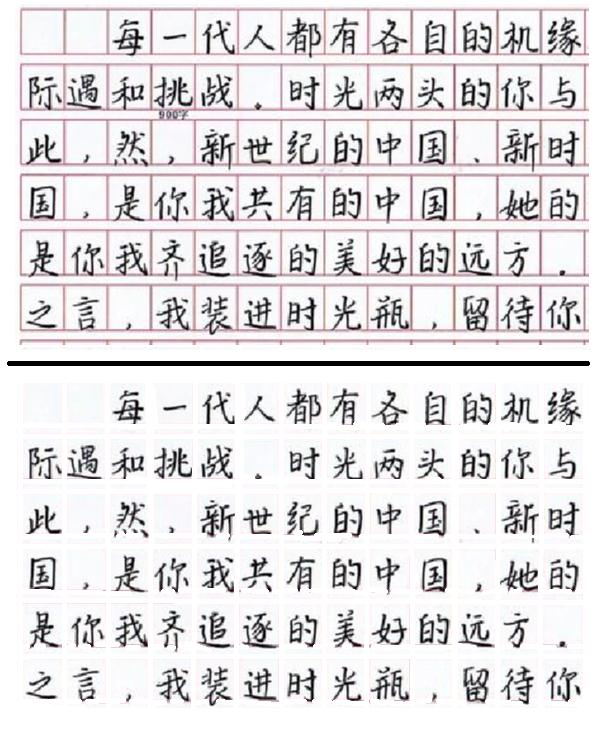 每一代人都有各自的机缘
际遇和挑战。时光两头的你与
900字
此，然，新世纪的中国、新时
国，是你我共有的中国，她的
是你我齐追逐的美好的远方．
之言，我装进时光瓶，留待你
每一代人都有各自的机缘
际遇和挑战。时光两头的你与
此，然，新世纪的中国、新时
国，是你我共有的中国，她的
是你我齐追逐的美好的远方．
之言，我装进时光瓶，留待你